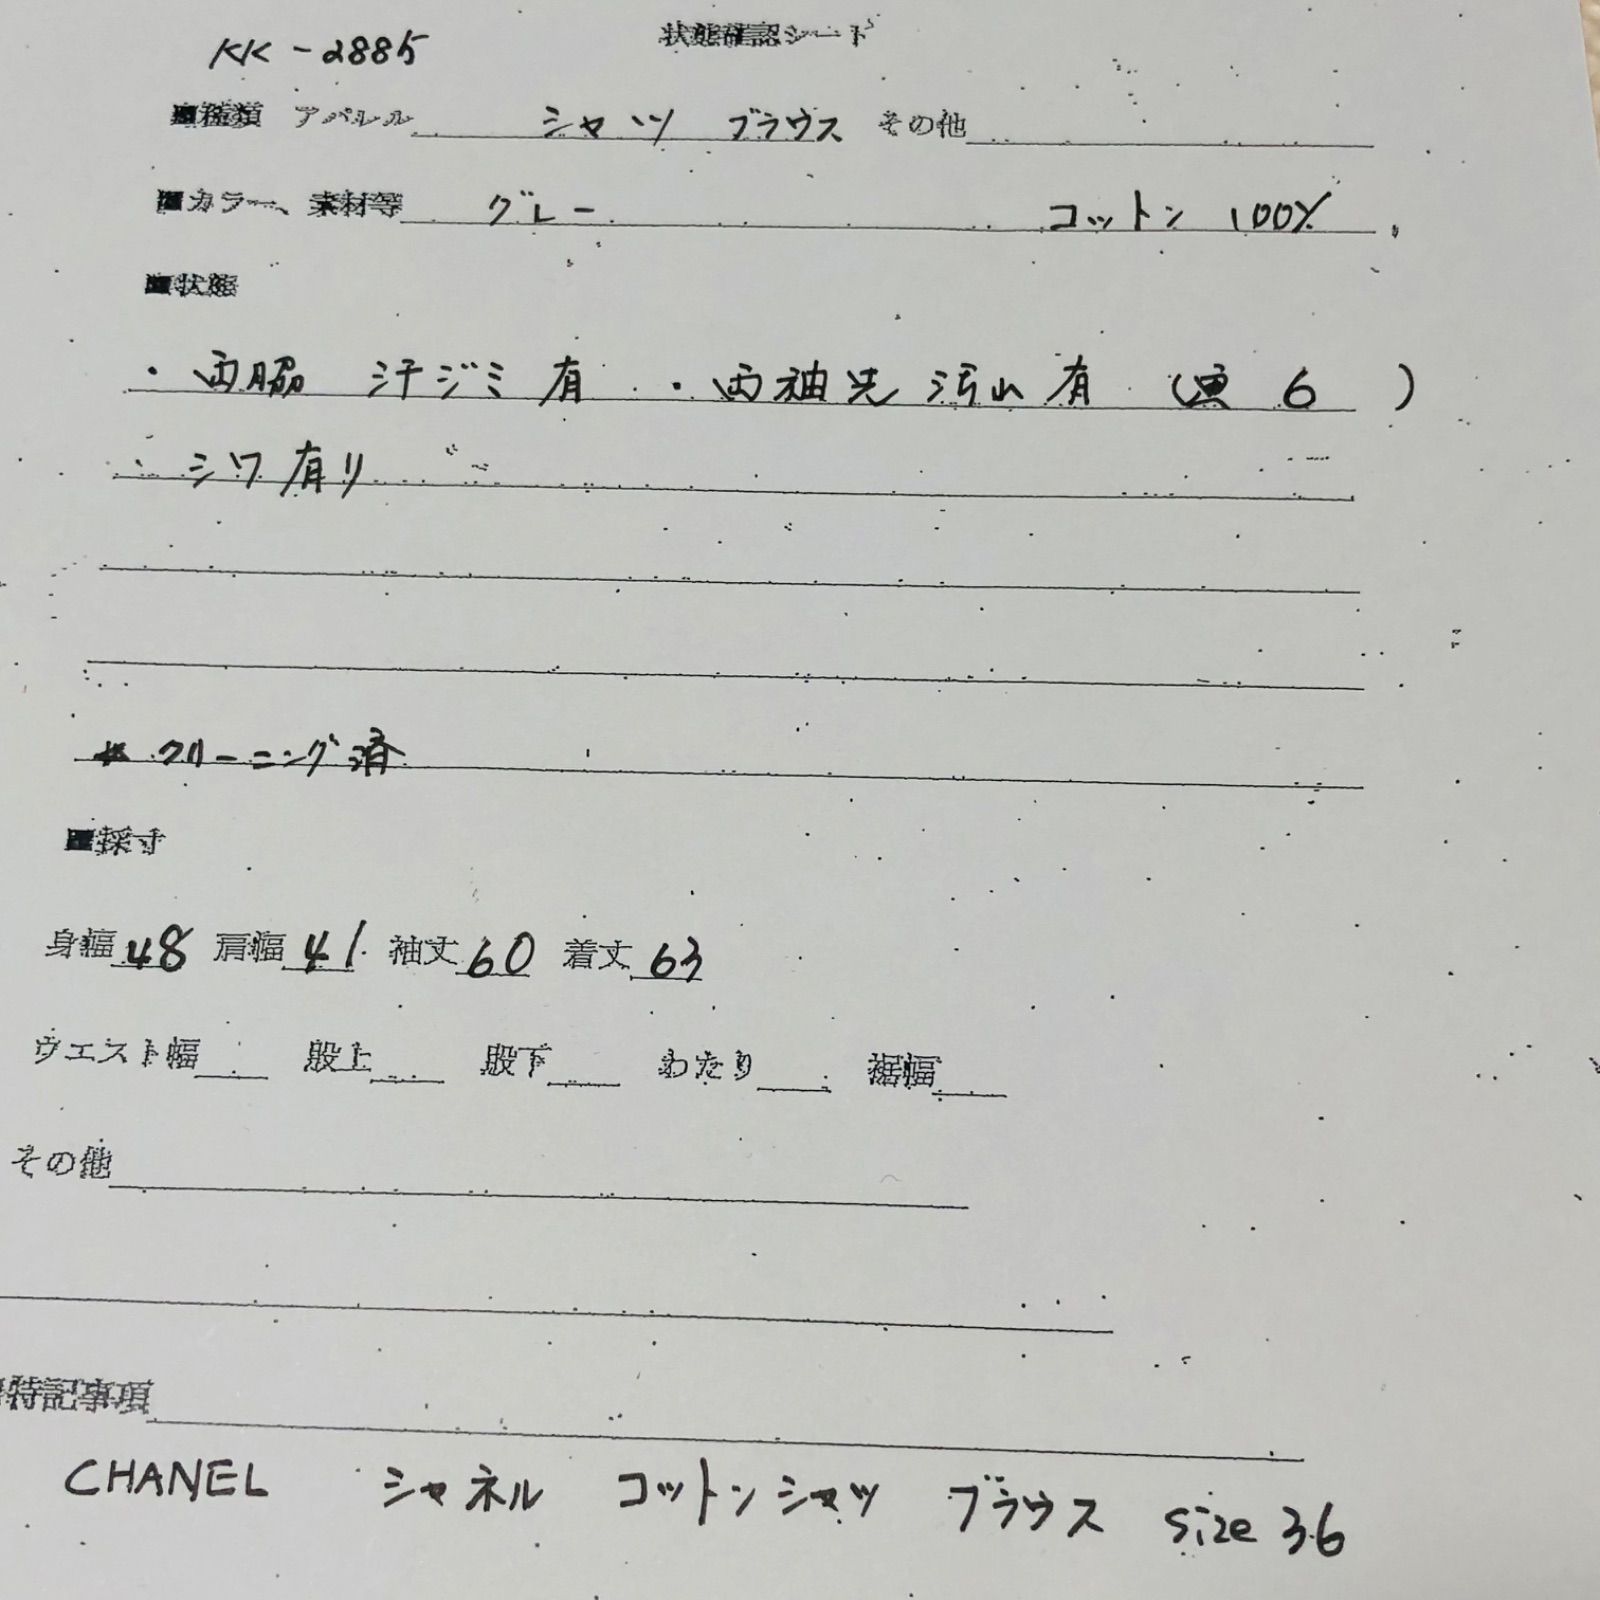 KK-2885
状態確認シート
■種類 アパレル シャツ ブラウス その他
■カラー、素材等 グレー コットン 100%
■状態
・両脇 汗ジミ有 ・両袖先 汚れ有 ( 6 )
・シワ有り
* クリーニング済
■採寸
身幅 48 肩幅 41 袖丈 60 着丈 63
ウエスト幅 股上 股下 わたり 裾幅
その他
■特記事項
CHANEL シャネル コットンシャツ ブラウス size 36